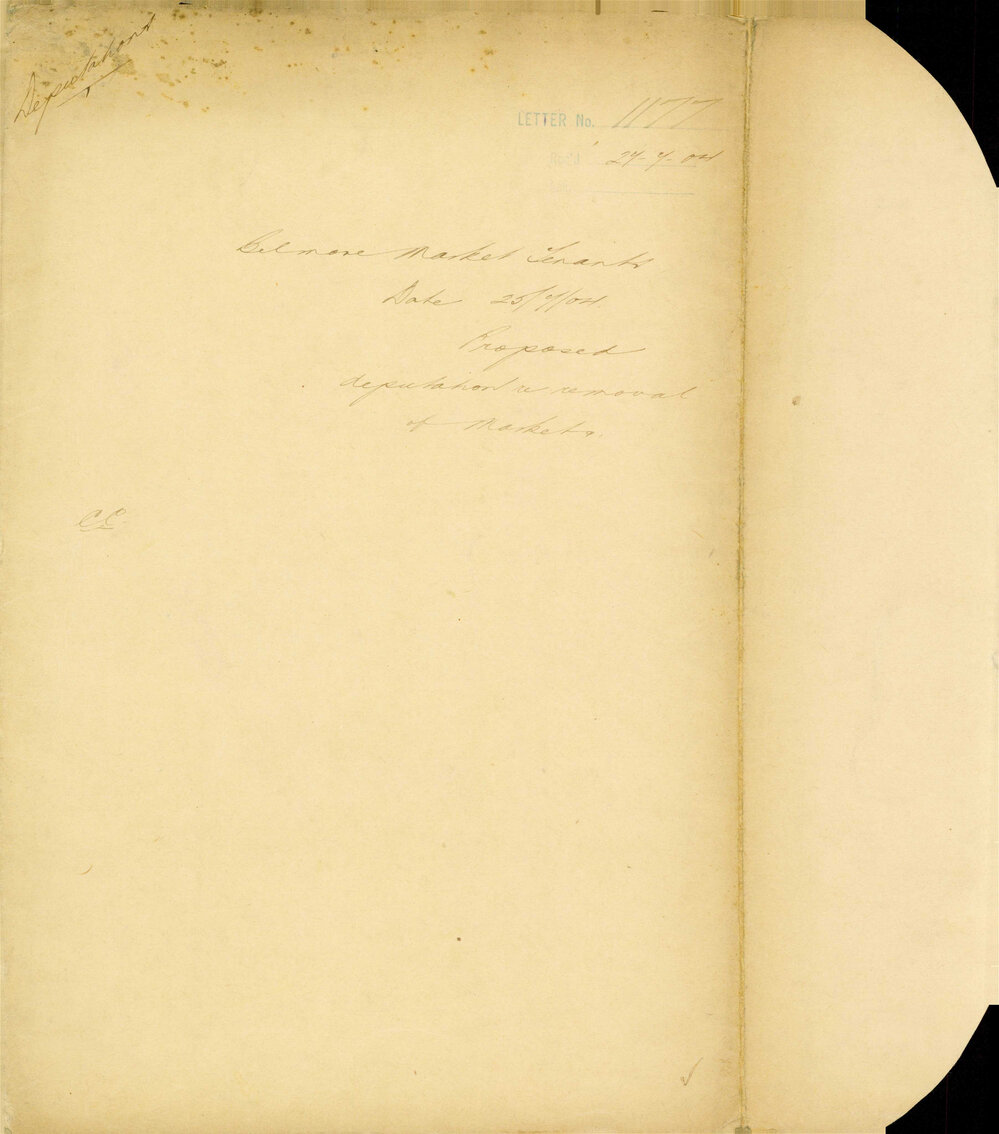 Deputations
LETTER No. 1177
Rec'd 27-7-04
Belmore Market Tenants
Date 25/7/04.
Proposed
deputation re removal
of Markets.
CC